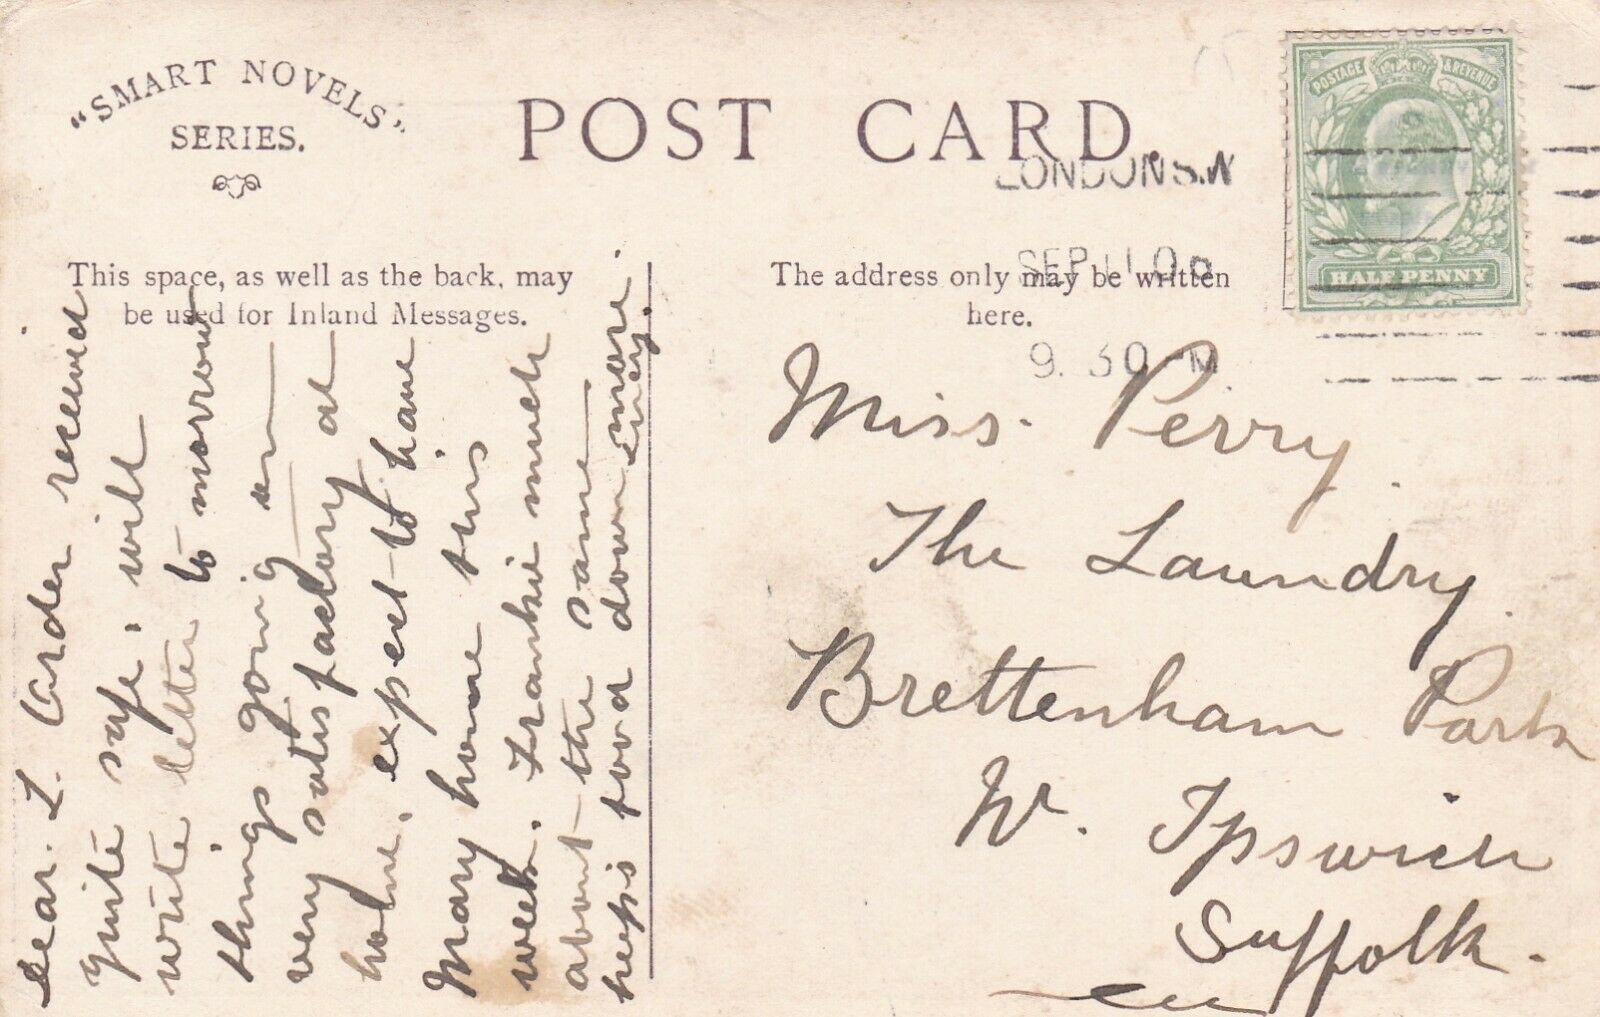 "SMART NOVELS"
SERIES.
POST CARD.
LONDON S.W
SEP 11 0
9. 30 M
POSTAGE & REVENUE
HALFPENNY
This space, as well as the back, may
be used for Inland Messages.
The address only may be written
here.
Dear. L. Order received
quite safe. will
write letter to morrow
things going on
very satisfactory at
home, expect to have
Mary home this
week. Frankie much
about the same
keeps food down more
Lucy.
Miss. Perry.
The Laundry.
Brettenham Park
Nr. Ipswich
Suffolk.